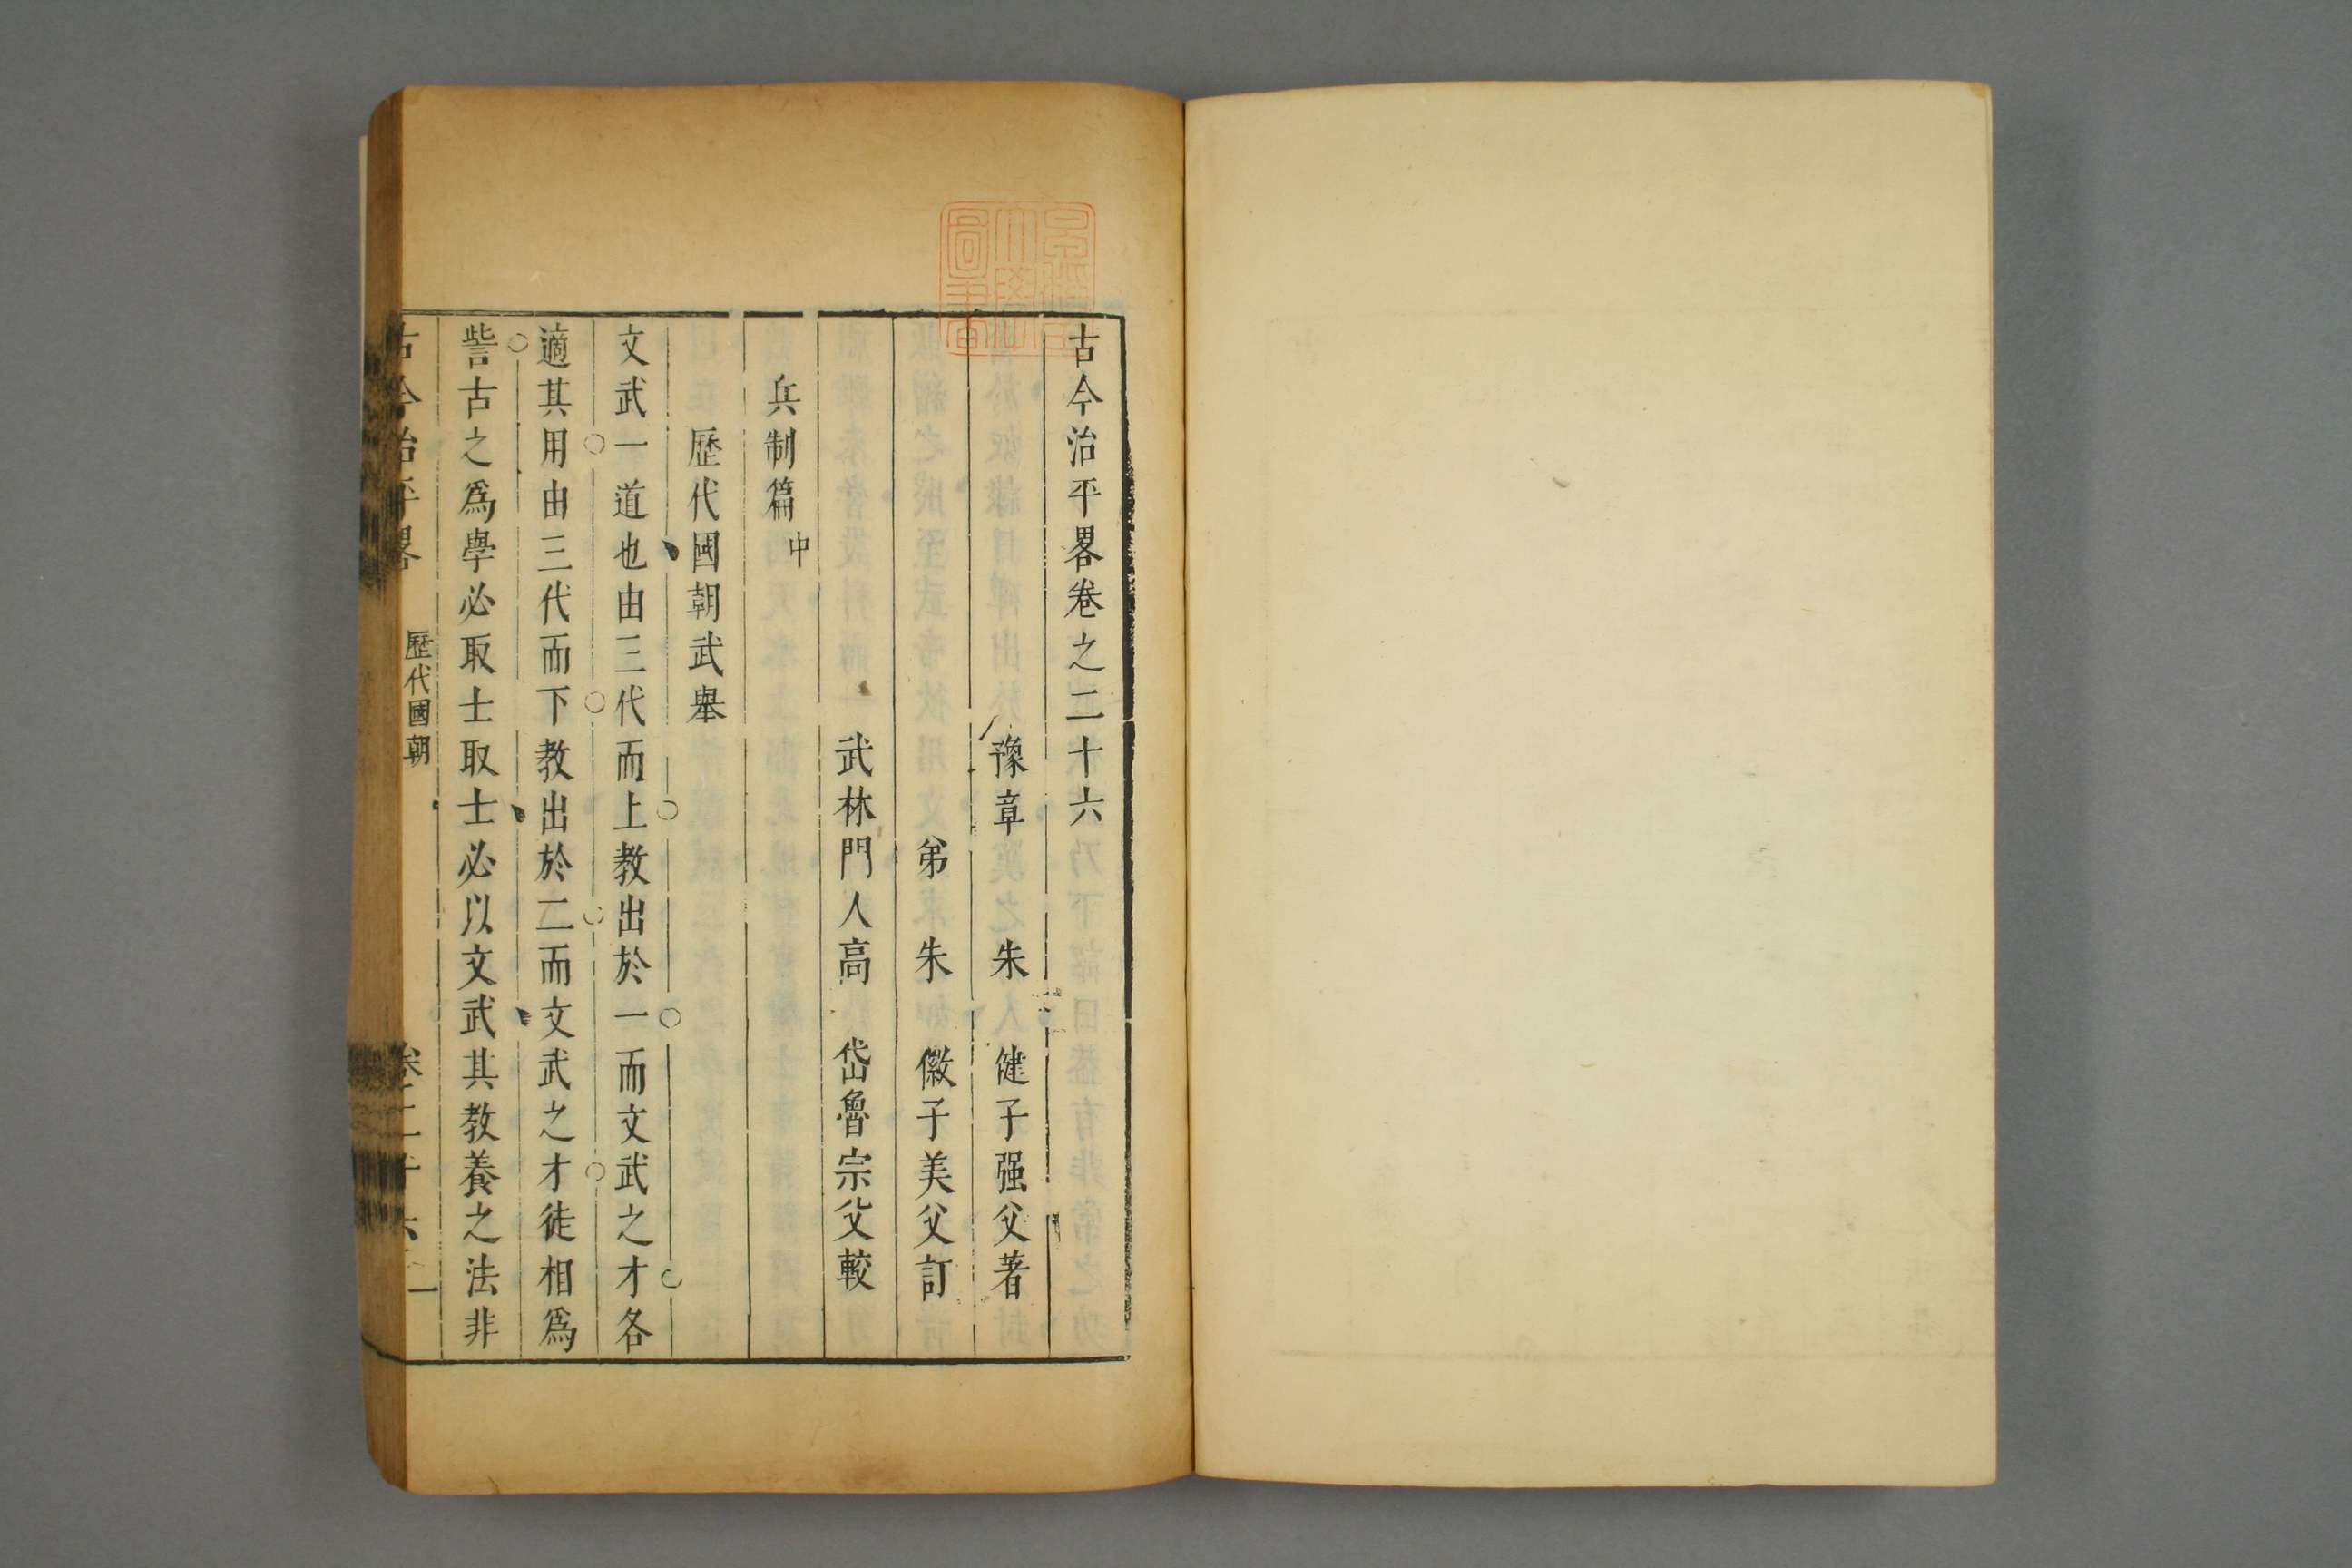 古今治平畧卷之二十六
豫章 朱 健子强父著
弟 朱 徽子美父訂
武林門人高 岱魯宗父較
兵制篇中
歷代國朝武舉
文武一道也由三代而上教出於一而文武之才各
適其用由三代而下教出於二而文武之才徒相爲
訾古之爲學必取士取士必以文武其教養之法非
古今治平畧 歷代國朝 卷二十六 一